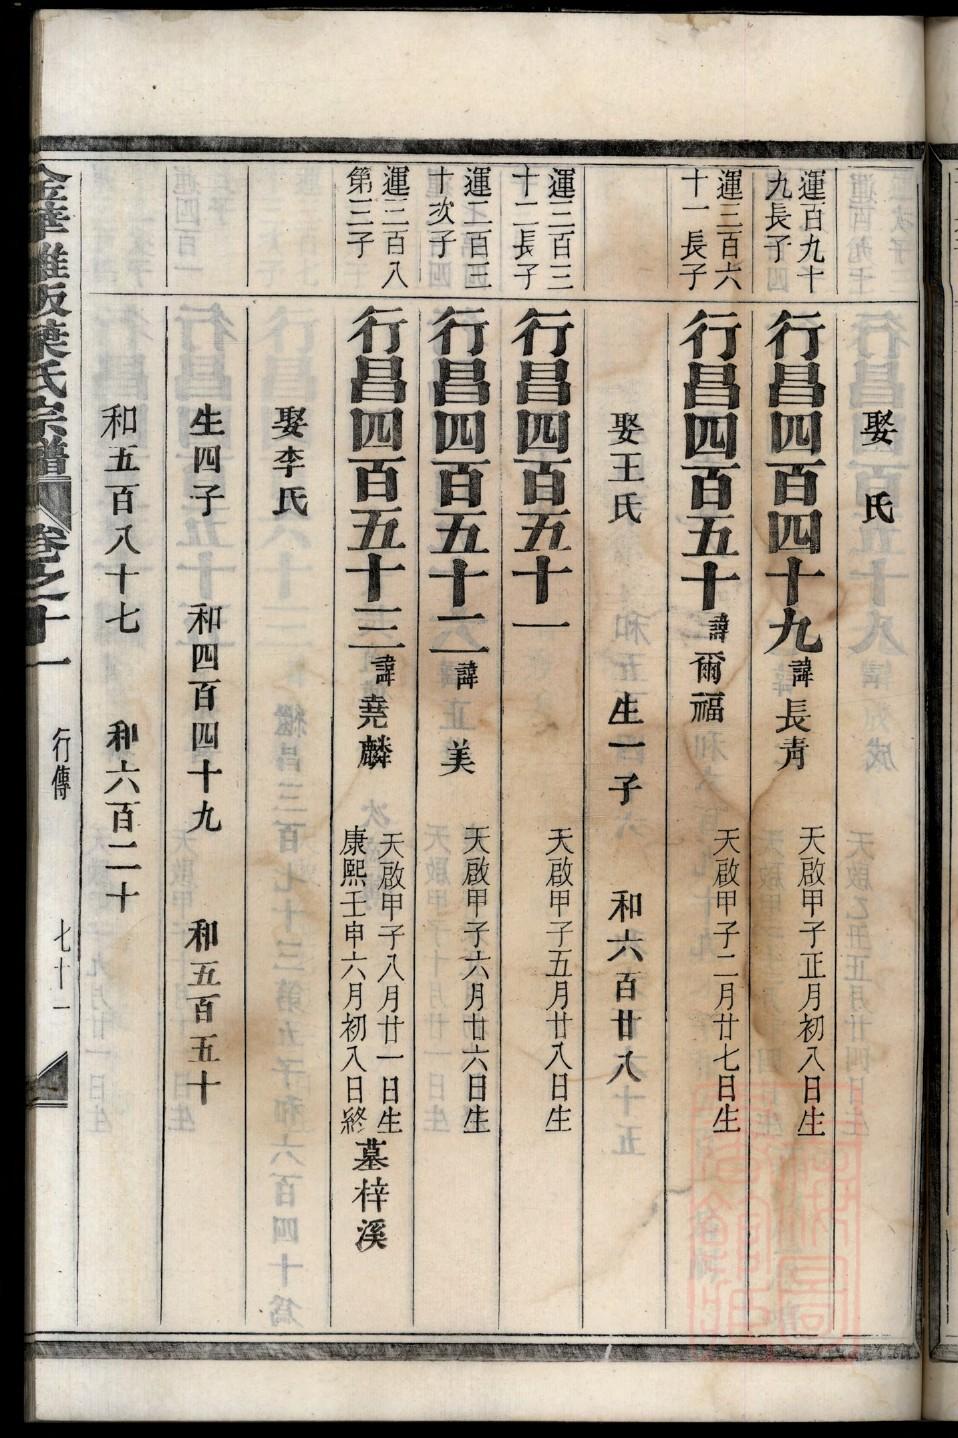 娶 氏
運百九十九長子
行昌四百四十九 諱長青 天啟甲子正月初八日生
運三百六十一長子
行昌四百五十 諱爾福 天啟甲子二月廿七日生
娶王氏 生一子 和六百廿八
運三百三十二長子
行昌四百五十一 天啟甲子五月廿八日生
十次子
行昌四百五十二 諱美 天啟甲子六月廿六日生
運三百八第三子
行昌四百五十三 諱堯麟 天啟甲子八月廿一日生 康熙壬申六月初八日終 墓梓溪
娶李氏
生四子 和四百四十九 和五百五十
和五百八十七 和六百二十
葉氏宗譜 卷之十一 行傳 七十一